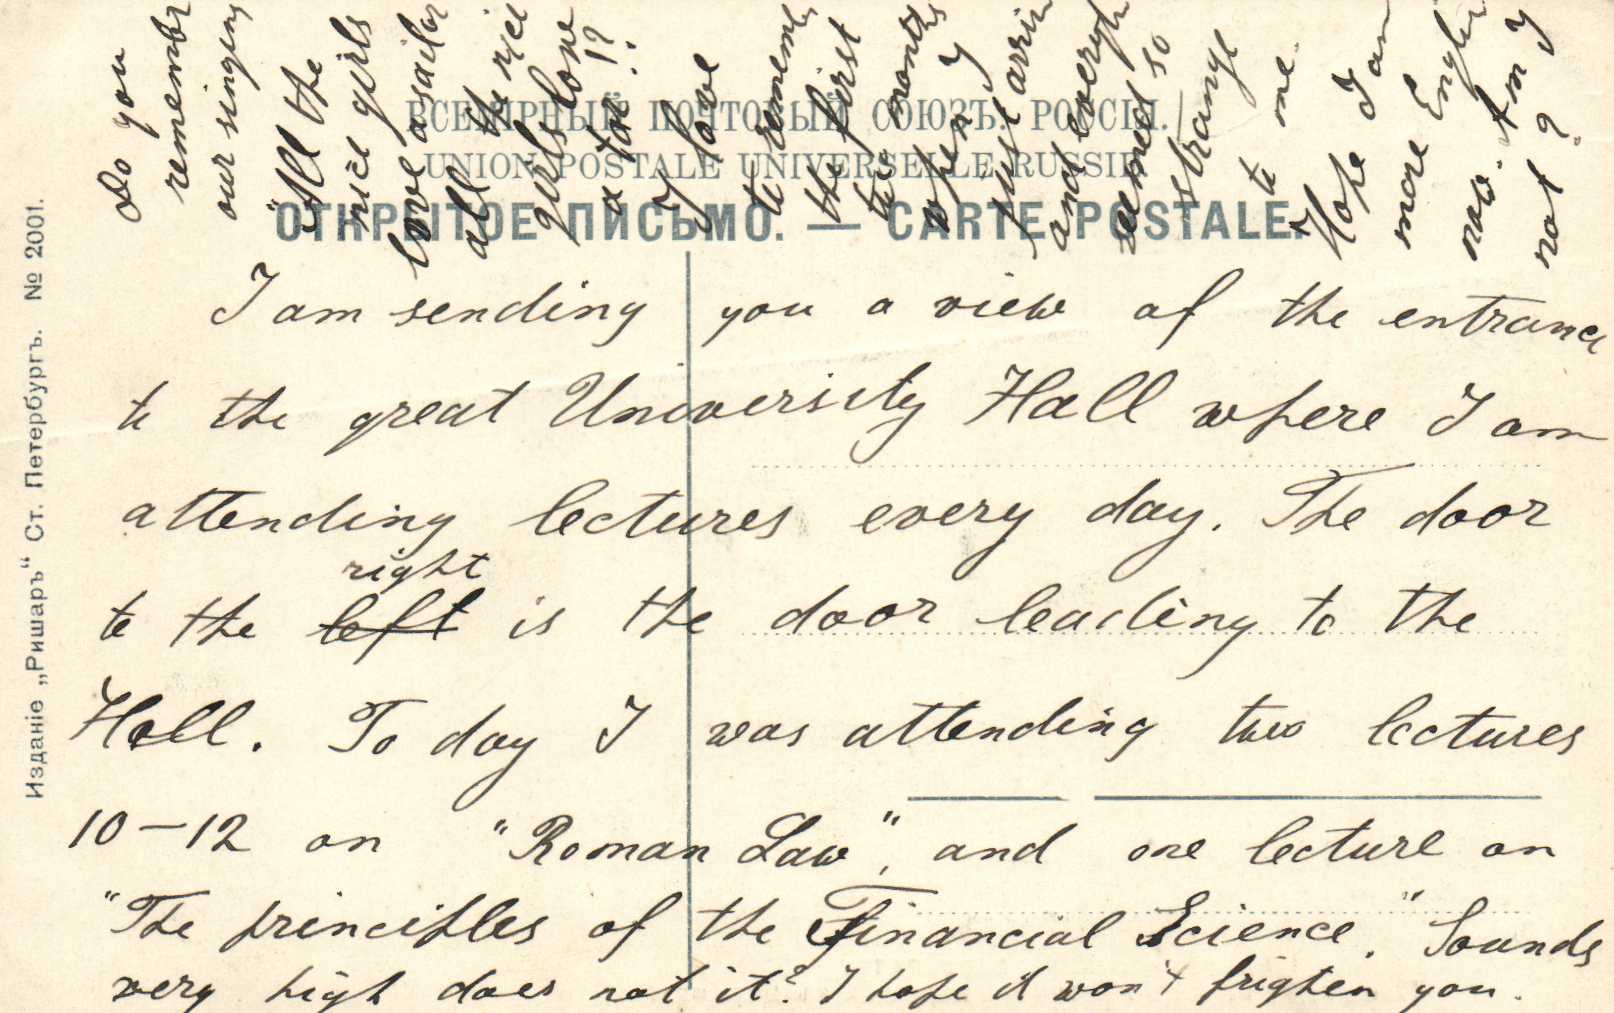 ВСЕМІРНЫЙ ПОЧТОВЫЙ СОЮЗЪ. РОССІЯ.
UNION POSTALE UNIVERSELLE RUSSIE
ОТКРЫТОЕ ПИСЬМО. — CARTE POSTALE.
Изданіе „Ришаръ“ Ст. Петербургъ. № 2001.
I am sending you a view of the entrance
to the great University Hall where I am
attending lectures every day. The door
right
to the left is the door leading to the
Hall. To day I was attending two lectures
10-12 on "Roman Law", and one lecture on
"The principles of the Financial Science." Sounds
very high does not it? I hope it won't frighten you.
Do you
remember
our singing
"All the
nice girls
love a sailor
all the nice
girls love
a tar"!?
I love
to remember
the first
two months
when I
just arrived
and everything
seemed so
strange
to me.
Hope I am
more English
now. Am I
not?